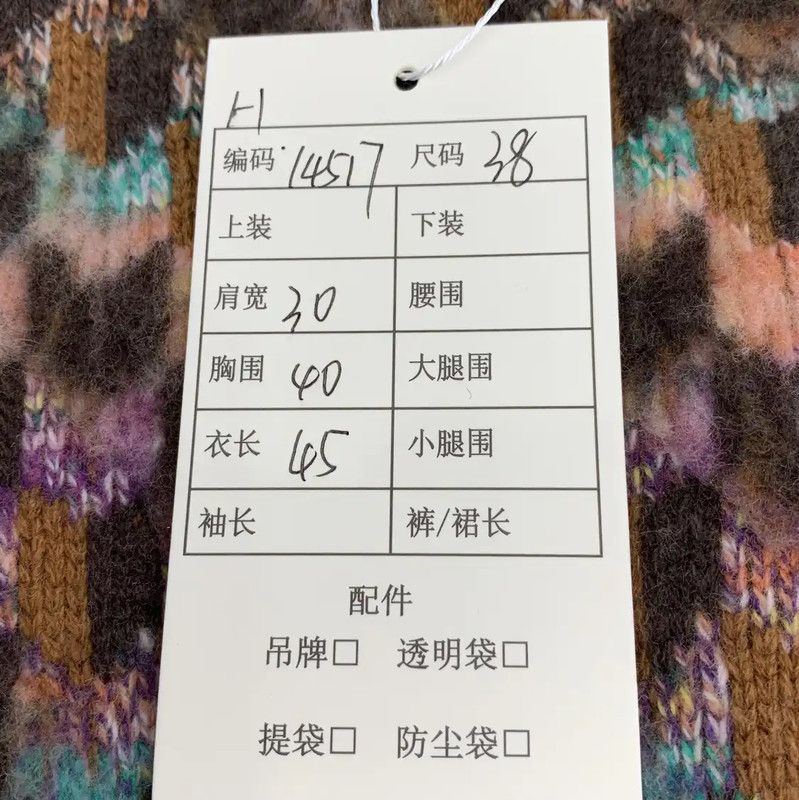 H
编码 14517 尺码 38
上装 下装
肩宽 30 腰围
胸围 40 大腿围
衣长 45 小腿围
袖长 裤/裙长
配件
吊牌□ 透明袋□
提袋□ 防尘袋□